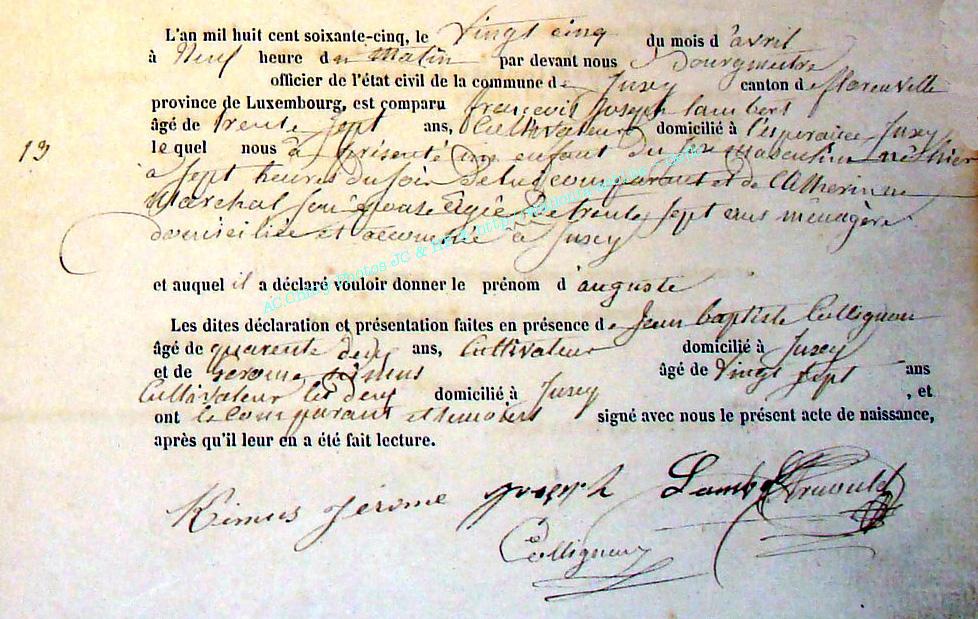 L'an mil huit cent soixante-cinq, le vingt cinq du mois d'avril
à Neuf heure du matin par devant nous Bourgmestre
officier de l'état civil de la commune de Jusey canton de florenville
province de Luxembourg, est comparu françois Joseph lambert
âgé de trente sept ans, Cultivateur domicilié à l'esperance Jusey
13 le quel nous à présenté un enfant du sexe masculin né hier
à sept heures du soir de lui comparant et de Catherinne
Marchal son épouse agée de trente sept ans ménagère
domiciliée et accouchée à Jusey
et auquel il a déclaré vouloir donner le prénom d'auguste
Les dites déclaration et présentation faites en présence de Jean baptiste Collignon
âgé de quarente deux ans, Cultivateur domicilié à Jusey
et de gerome rimus âgé de vingt sept ans
Cultivateur les deux domicilié à Jusey , et
ont le Comparant et temoins signé avec nous le présent acte de naissance,
après qu'il leur en a été fait lecture.
Rimus Jérome joseph Lambert
Collignon